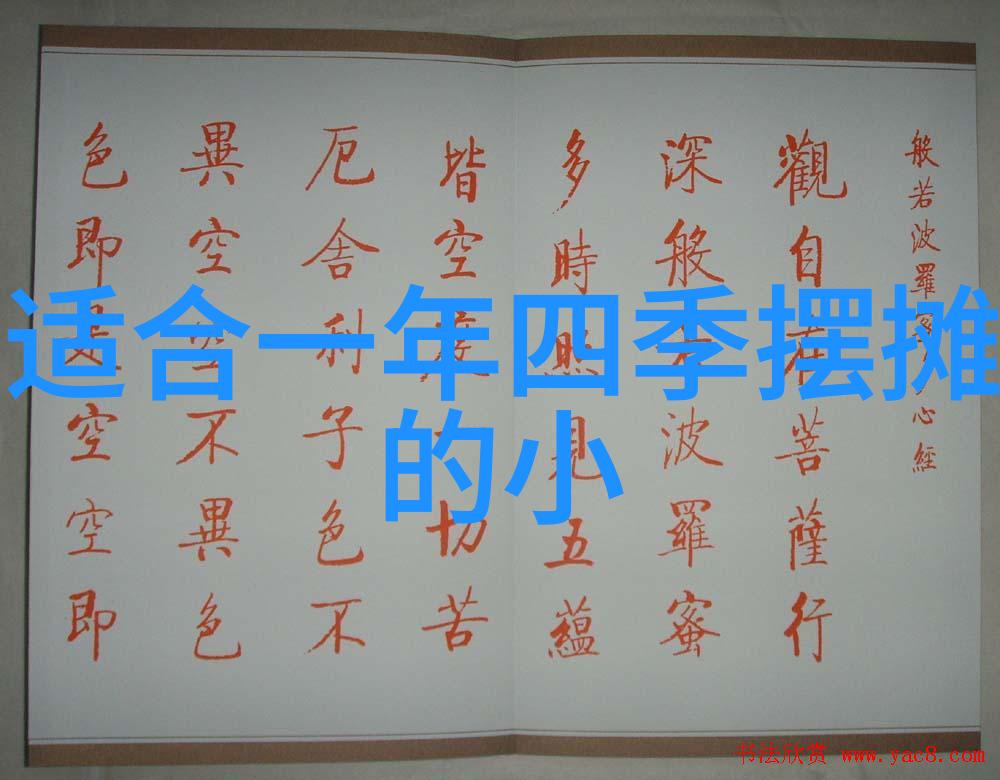 适合一年四季摆摊
的小
般若波羅心經
觀自在菩薩行
深般波羅蜜
多時照見五蘊
皆空度切苦
厄舍利子色不
異空空不異色
色即是空空即
书法欣赏 www.yac8.com